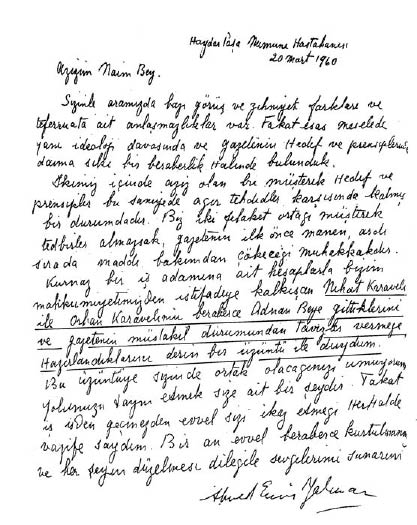 Haydar Paşa Numune Hastahanesi
20 Mart 1960
Azizim Naim Bey.
Sizinle aramızda bazı görüş ve zihniyet farkları ve
teferruata ait anlaşmazlıklar var. Fakat esas meselede
yani ideoloji davasında ve gazetenin Hedef ve prensiplerinde
daima sıkı bir beraberlik Halinde bulunduk.
İkimiz içinde aziz olan bu müşterek Hedef ve
prensipler bu saniyede ağır tehdidler karşısında kalmış
bir durumdadır. Biz iki felaket ortağı müşterek
tedbirler almazsak, gazetenin ilk önce manen,
sırada maddi bakımdan çökeceği muhakkakdır.
Kurnaz bir iş adamına ait hesaplarla bizim
mahkumiyetimizden istifadeye kalkışan Nihat Karaveli
ile Orhan Karavelinin beraberce Adnan Beye gittiklerini
ve gazetenin müstakil durumundan tavizler vermeye
Hazırlandıklarını derin bir üzüntü ile duydum.
Bu üzüntüye sizinde ortak olacağınızı umuyorum
Yolunuzu tayin etmek size ait bir şeydir. Fakat
iş işden geçmezden evvel sizi ikaz etmeği Herhalde
vazife saydım. Bir an evvel beraberce kurtulmamız
ve her şeyin düzelmesi dileğile sevgilerimi sunarım
Ahmed Emin Yalman